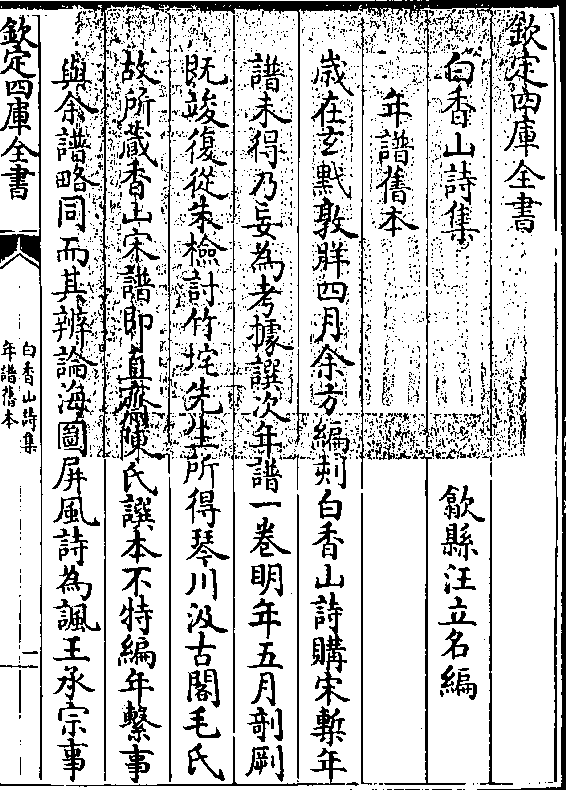 欽定四庫全書
白香山詩集　　　　歙縣汪立名編
年譜舊本
歲在玄黓敦牂四月余方編刻白香山詩購宋槧年
譜未得乃妄為考據譔次年譜一卷明年五月剞劂
既竣復從朱檢討竹垞先生所得琴川汲古閣毛氏
故所蔵香山宋譜即直齋陳氏譔本不特編年繫事
與余譜略同而其辨論海圖屏風詩為諷王承宗事
欽定四庫全書
白香山詩集
年譜舊本
一